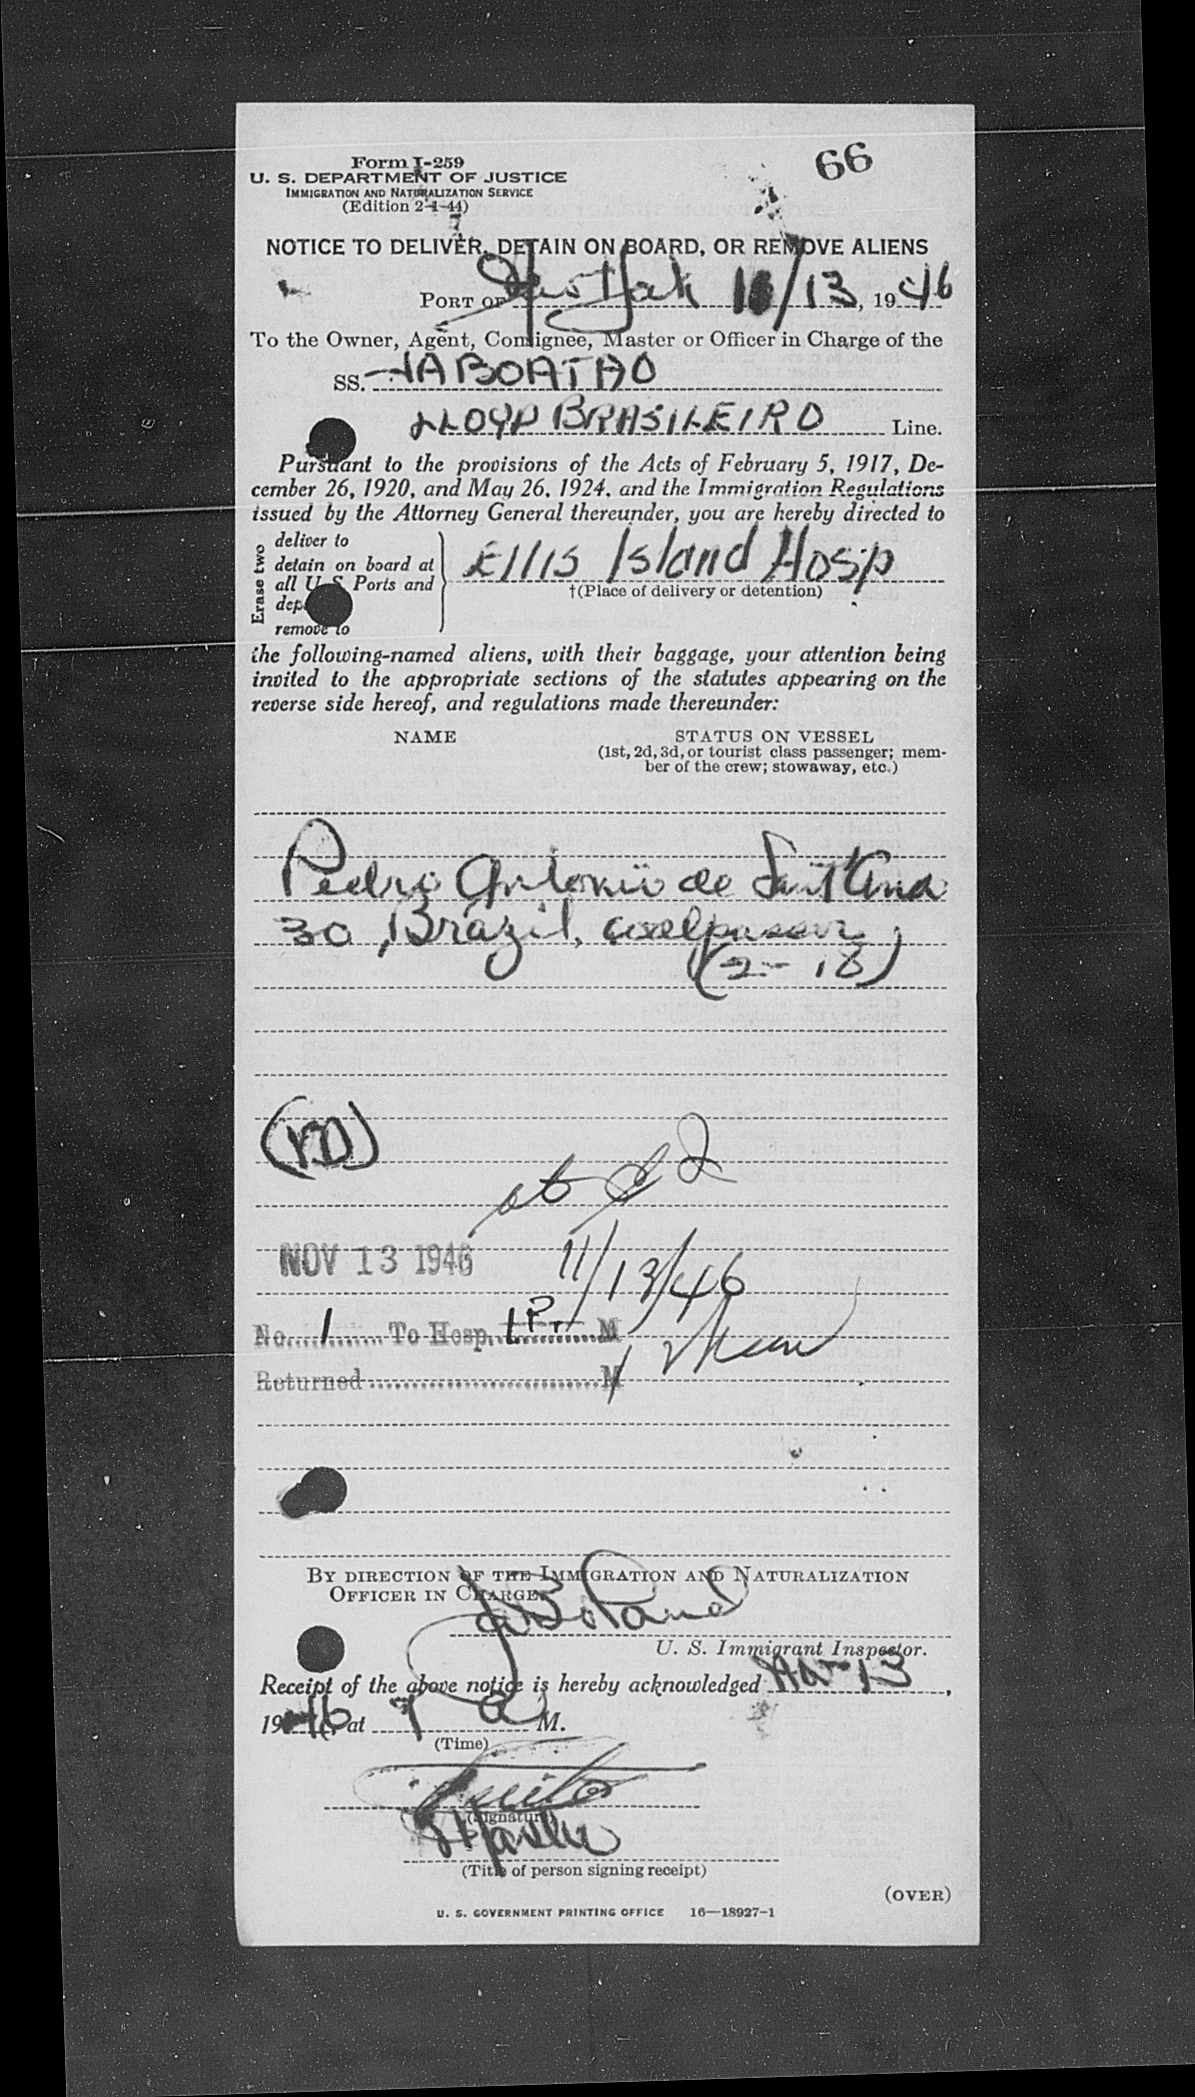 66
Form I-259
U. S. DEPARTMENT OF JUSTICE
IMMIGRATION AND NATURALIZATION SERVICE
(Edition 2-1-44)
NOTICE TO DELIVER, DETAIN ON BOARD, OR REMOVE ALIENS
PORT OF New York 11/13, 1946
To the Owner, Agent, Consignee, Master or Officer in Charge of the
SS. JABOATAO
LLOYD BRASILEIRO Line.
Pursuant to the provisions of the Acts of February 5, 1917, De-
cember 26, 1920, and May 26, 1924, and the Immigration Regulations
issued by the Attorney General thereunder, you are hereby directed to
Erase two
deliver to
detain on board at
all U. S. Ports and
remove to
Ellis Island Hosp
†(Place of delivery or detention)
the following-named aliens, with their baggage, your attention being
invited to the appropriate sections of the statutes appearing on the
reverse side hereof, and regulations made thereunder:
NAME STATUS ON VESSEL
(1st, 2d, 3d, or tourist class passenger; mem-
ber of the crew; stowaway, etc.)
Pedro Antonio de Sant Ana
30, Brazil, coalpasser
(2-18)
NOV 13 1946
11/13/46
No. 1 To Hosp. 1 P. M
Returned M
BY DIRECTION OF THE IMMIGRATION AND NATURALIZATION
OFFICER IN CHARGE.
J Boland
U. S. Immigrant Inspector.
Receipt of the above notice is hereby acknowledged Nov 13,
1946, at 7 a M.
(Time)
(Signature)
Master
(Title of person signing receipt)
(OVER)
U. S. GOVERNMENT PRINTING OFFICE 16—18927-1